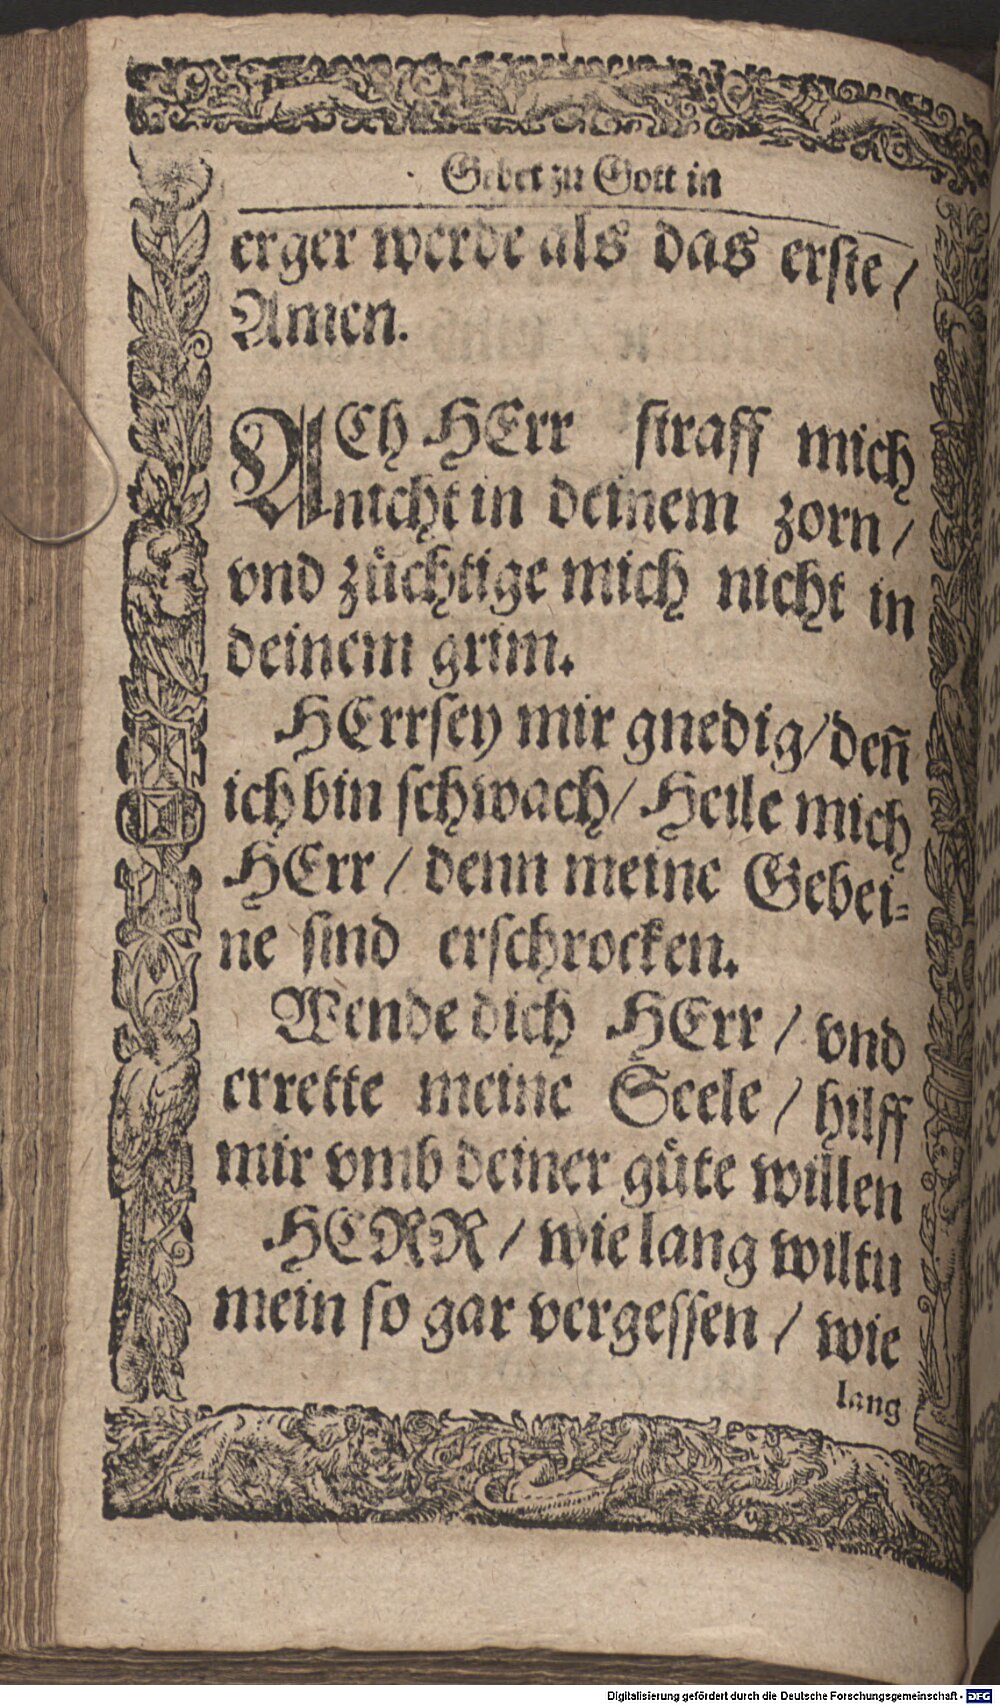 Gebet zu Gott in
erger werde als das erste /
Amen.
ACh HErr straff mich
nicht in deinem zorn /
vnd züchtige mich nicht in
deinem grim.
HErr sey mir gnedig / deñ
ich bin schwach / Heile mich
HErr / denn meine Gebei=
ne sind erschrocken.
Wende dich HErr / vnd
errette meine Seele / hilff
mir vmb deiner güte willen
HERR / wie lang wiltu
mein so gar vergessen / wie
lang
Digitalisierung gefördert durch die Deutsche Forschungsgemeinschaft - DFG